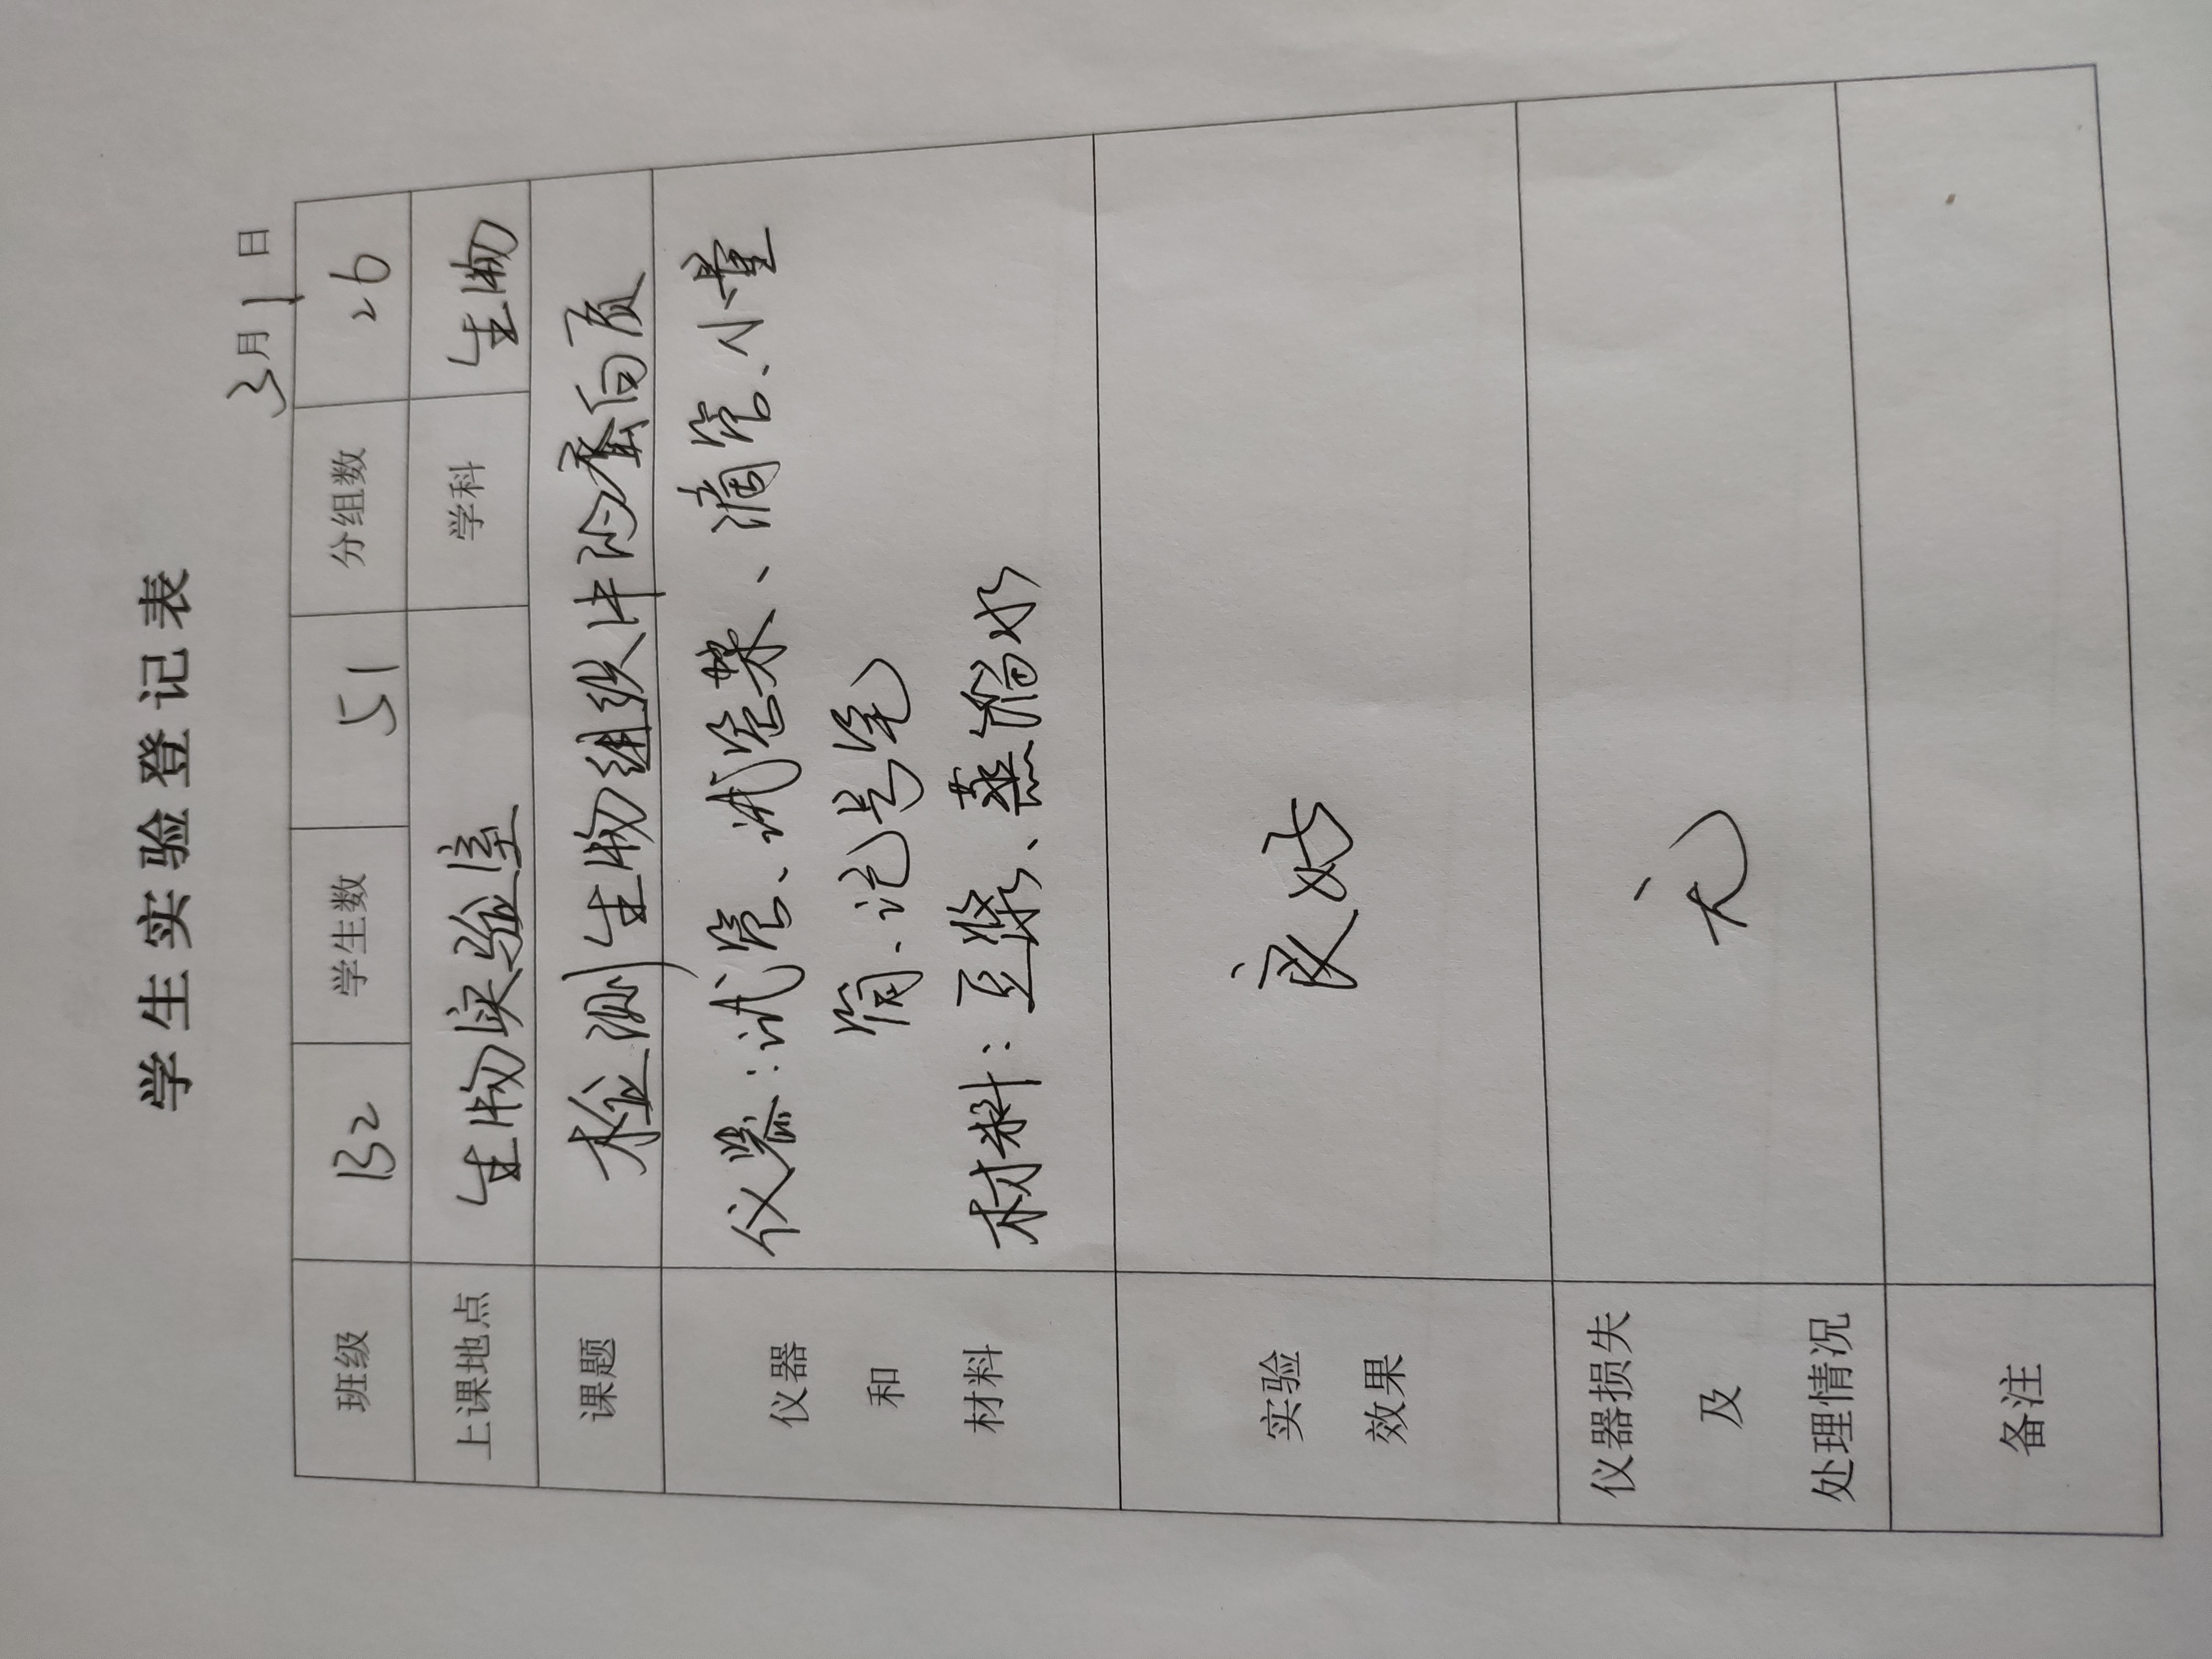 学生实验登记表
3月1日
班级 B2 学生数 51 分组数 26
上课地点 生物实验室 学科 生物
课题 检测生物组织中的蛋白质
仪器 仪器:试管、试管架、滴管、小量
和 筒、记号笔
材料 材料:豆浆、蒸馏水
实验
效果
良好
仪器损失
及
处理情况
无
备注